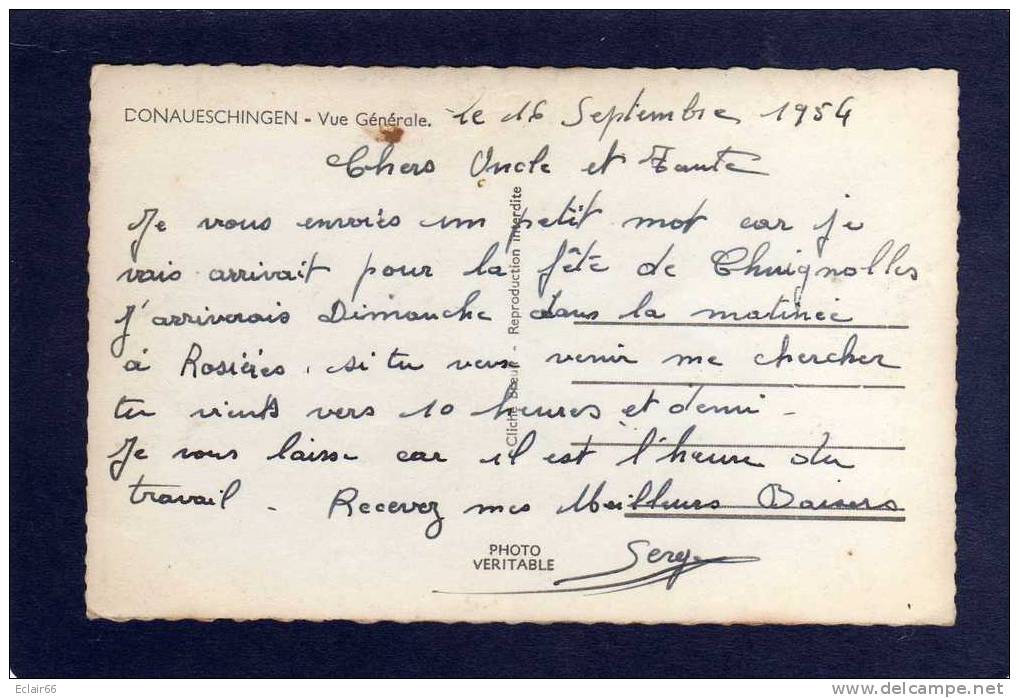 DONAUESCHINGEN - Vue Générale. le 16 Septembre 1954
Chers Oncle et Tante
Je vous envoies un petit mot car je
vais arrivait pour la fête de Chuignolles
J'arriverais Dimanche dans la matinée
à Rosières. si tu veux venir me chercher
tu vients vers 10 heures et demi -
Je vous laisse car il est l'heure du
travail. Recevez mes Meilleurs Baisers
Serge
Cliché Bœuf - Reproduction interdite
PHOTO
VERITABLE
Eclair66
www.delcampe.net